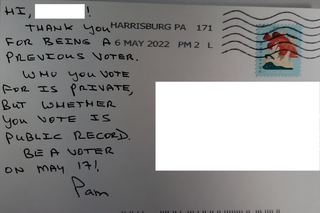 HI, !
THANK YOU
FOR BEING A
PREVIOUS VOTER.
WHO YOU VOTE
FOR IS PRIVATE,
BUT WHETHER
YOU VOTE IS
PUBLIC RECORD.
BE A VOTER
ON MAY 17!
Pam
HARRISBURG PA 171
6 MAY 2022 PM 2 L